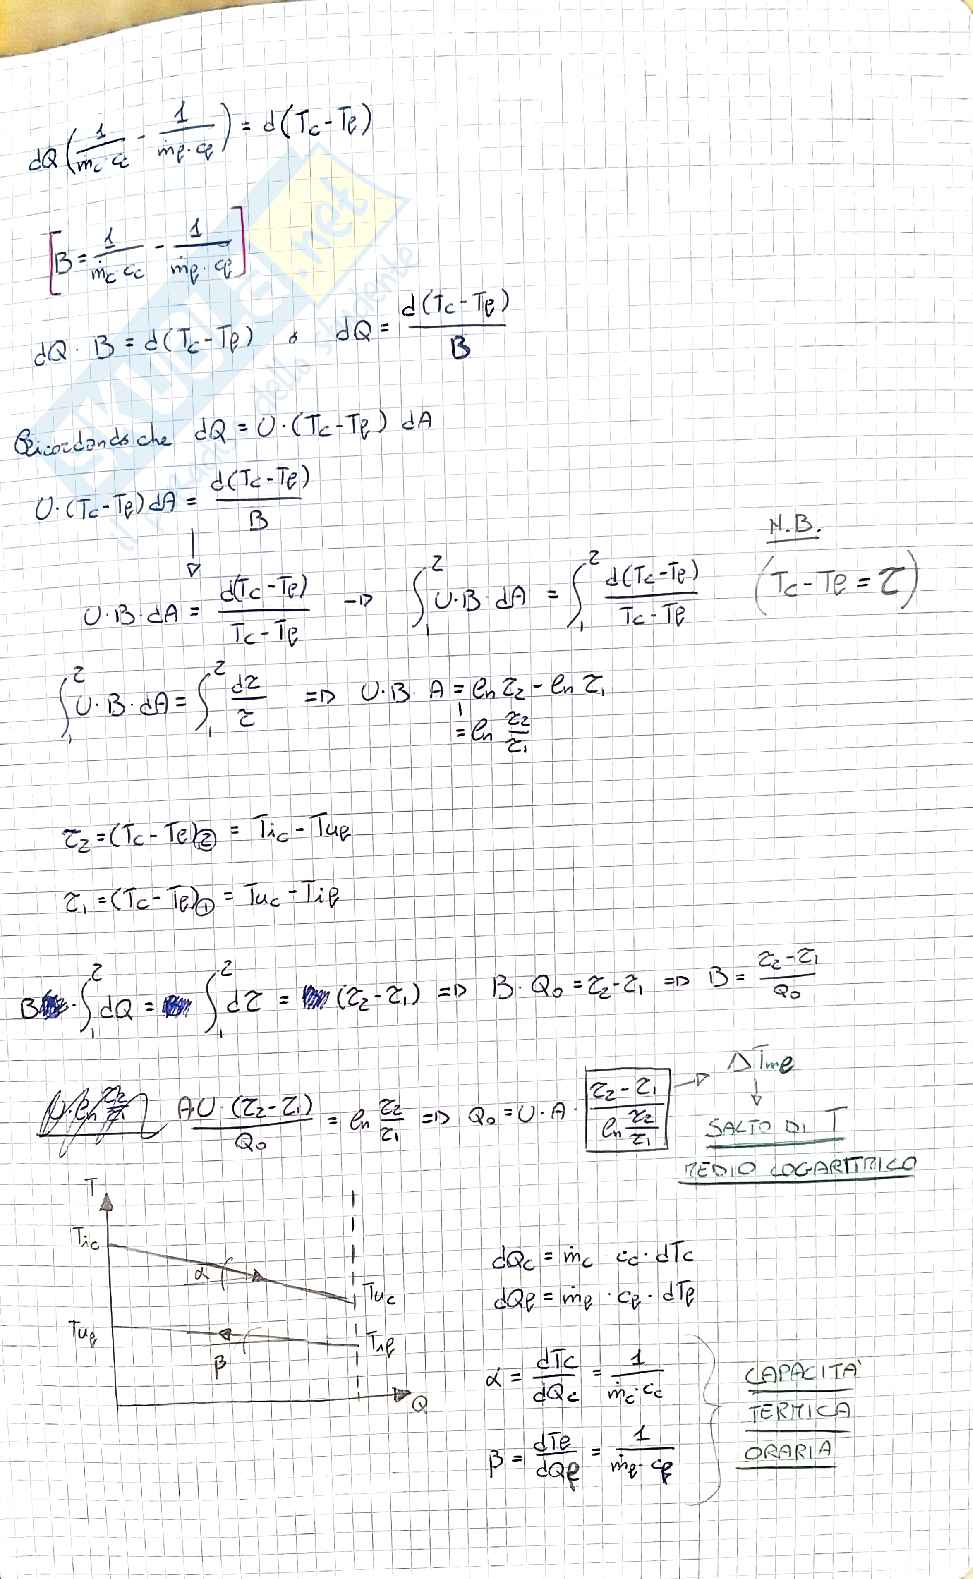 dQ (1/(ṁc cc) - 1/(ṁf · cf)) = d(Tc - Tf)
[B = 1/(ṁc cc) - 1/(ṁf · cf)]
dQ · B = d(Tc - Tf) o dQ = d(Tc - Tf)/B
Ricordando che dQ = U · (Tc - Tf) dA
U · (Tc - Tf) dA = d(Tc - Tf)/B
N.B.
U · B · dA = d(Tc - Tf)/(Tc - Tf) → ∫₁² U · B · dA = ∫₁² d(Tc - Tf)/(Tc - Tf) (Tc - Tf = τ)
∫₁² U · B · dA = ∫₁² dτ/τ ⇒ U · B A = ln τ₂ - ln τ₁
= ln τ₂/τ₁
τ₂ = (Tc - Tf)② = Tic - Tuf
τ₁ = (Tc - Tf)① = Tuc - Tif
B · ∫₁² dQ = ∫₁² dτ = (τ₂ - τ₁) ⇒ B · Q₀ = τ₂ - τ₁ ⇒ B = (τ₂ - τ₁)/Q₀
A·U · (τ₂ - τ₁)/Q₀ = ln τ₂/τ₁ ⇒ Q₀ = U · A · (τ₂ - τ₁)/(ln τ₂/τ₁) → ΔTml
SALTO DI T
MEDIO LOGARITMICO
T
Tic
α
Tuc
Tuf
Tif
β
Q
dQc = ṁc cc · dTc
dQf = ṁf · cf · dTf
α = dTc/dQc = 1/(ṁc · cc)
β = dTf/dQf = 1/(ṁf · cf)
CAPACITÀ
TERMICA
ORARIA